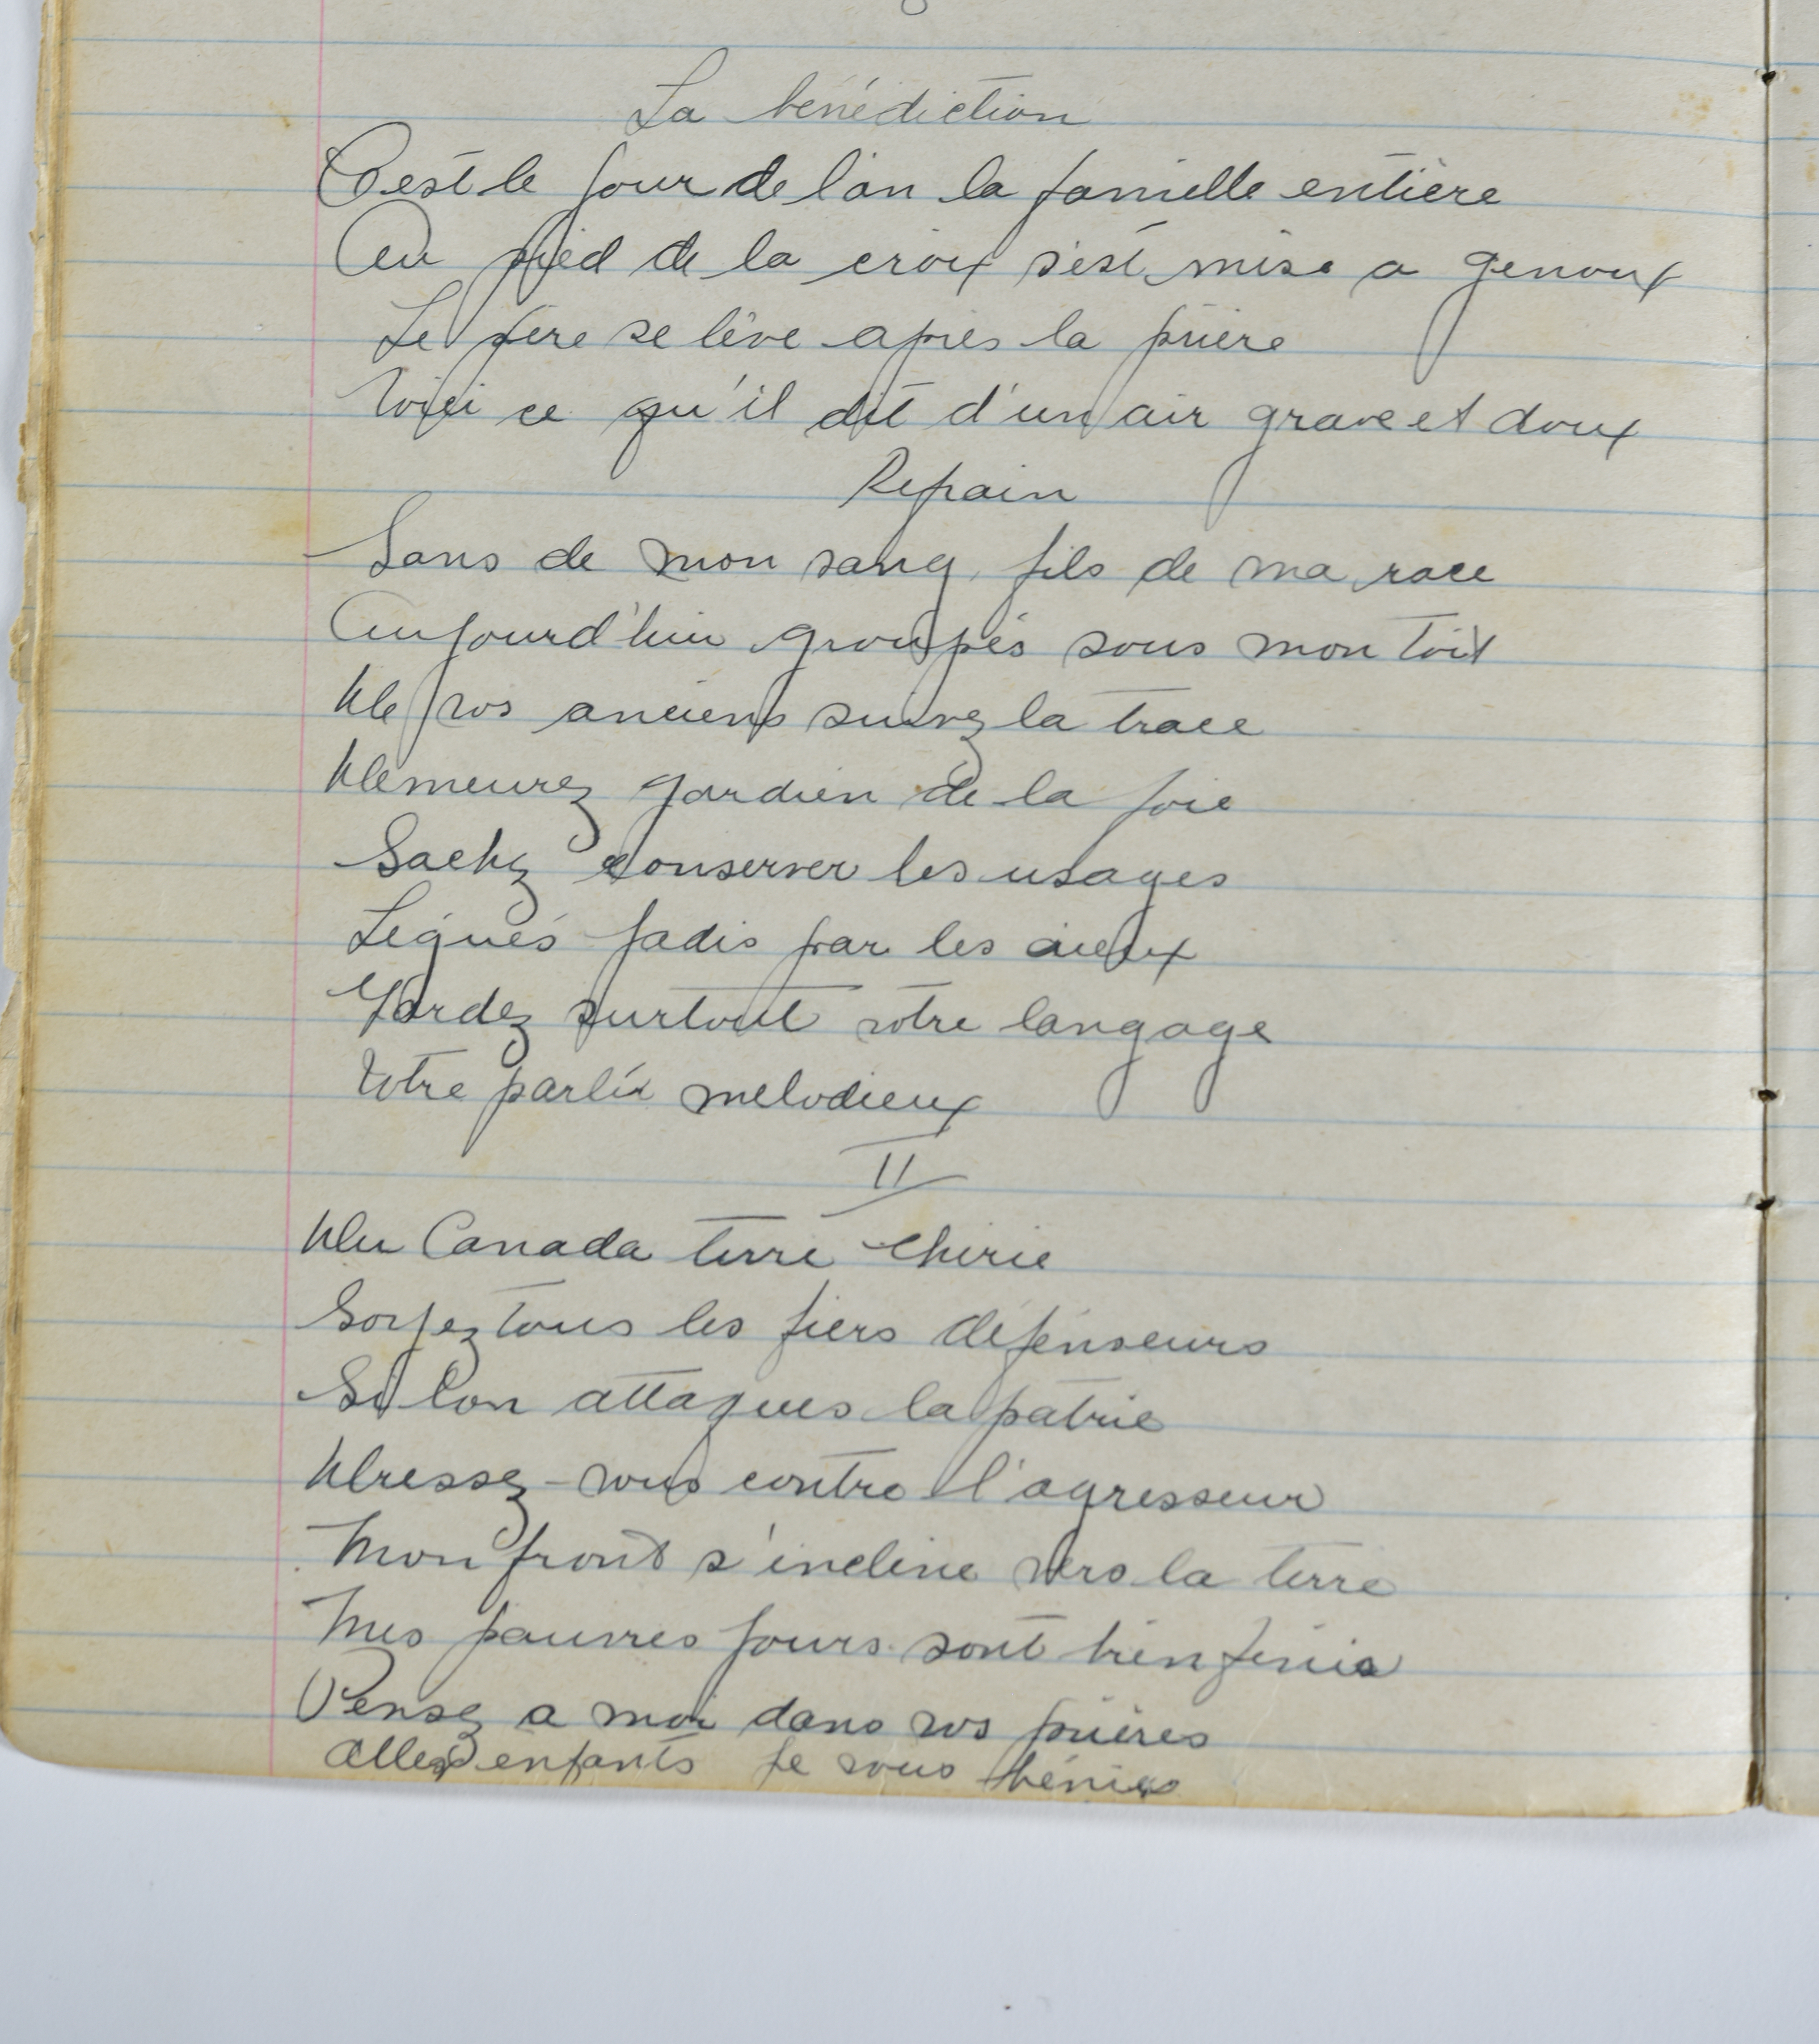 La bénédiction
C'est le jour de l'an la famielle entière
Au pied de la croix s'est mise a genoux
Le père se lève après la prière
Voici ce qu'il dit d'un air grave et doux
Refrain
Sans de mon sang, fils de ma race
Aujourd'hui groupés sous mon toit
De vos anciens suivez la trace
Demeurez gardien de la foie
Sachez conserver les usages
Légués jadis par les aieux
Gardez surtout votre langage
Votre parlér melodieux
II
Du Canada terre chérie
Soyez tous les fiers défenseurs
Si lon attaques la patrie
Dressez-vous contre l'agresseur
Mon front s'incline vers la terre
Mes pauvres jours sont bien finis
Pensez a moi dans vos prières
Allez enfants je vous bénies